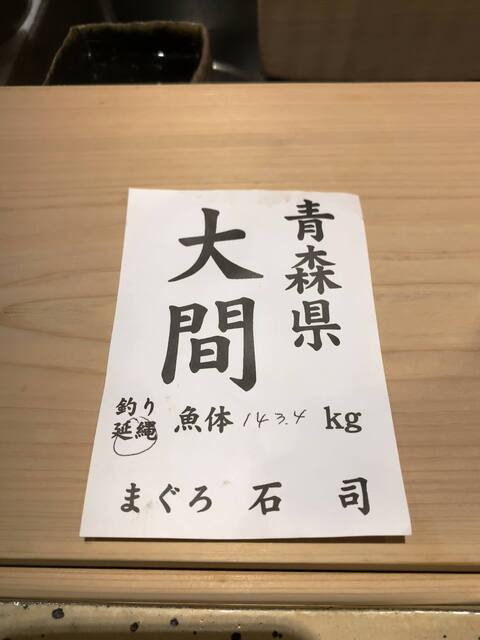 青森県
大間
釣り
延縄
魚体 143.4 kg
まぐろ 石 司